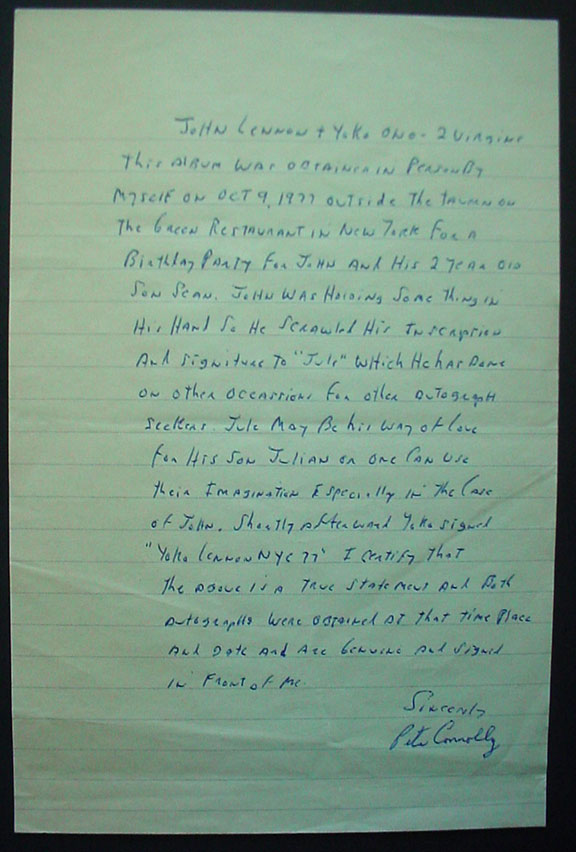 John Lennon + Yoko Ono - 2 Virgins
This Album was obtained in Person By
Myself on Oct 9, 1977 outside the Tavern on
The Green Restaurant in New York For a
Birthday Party For John And His 2 year old
Son Sean. John was Holding Some thing in
His Hand So He Scrawled His Inscription
And signiture to "Jule" which He has Done
on other occassions for other autograph
seekers. Jule May Be his way of Love
for His Son Julian or one Can use
their Imagination Especially in the Case
of John. Shortly afterward Yoko signed
"Yoko Lennon NYC 77" I certify that
the above is a True statement and Both
autographs were obtained at that time Place
And Date and Are Genuine and signed
in Front of Me.
Sincerely
Pete Connolly